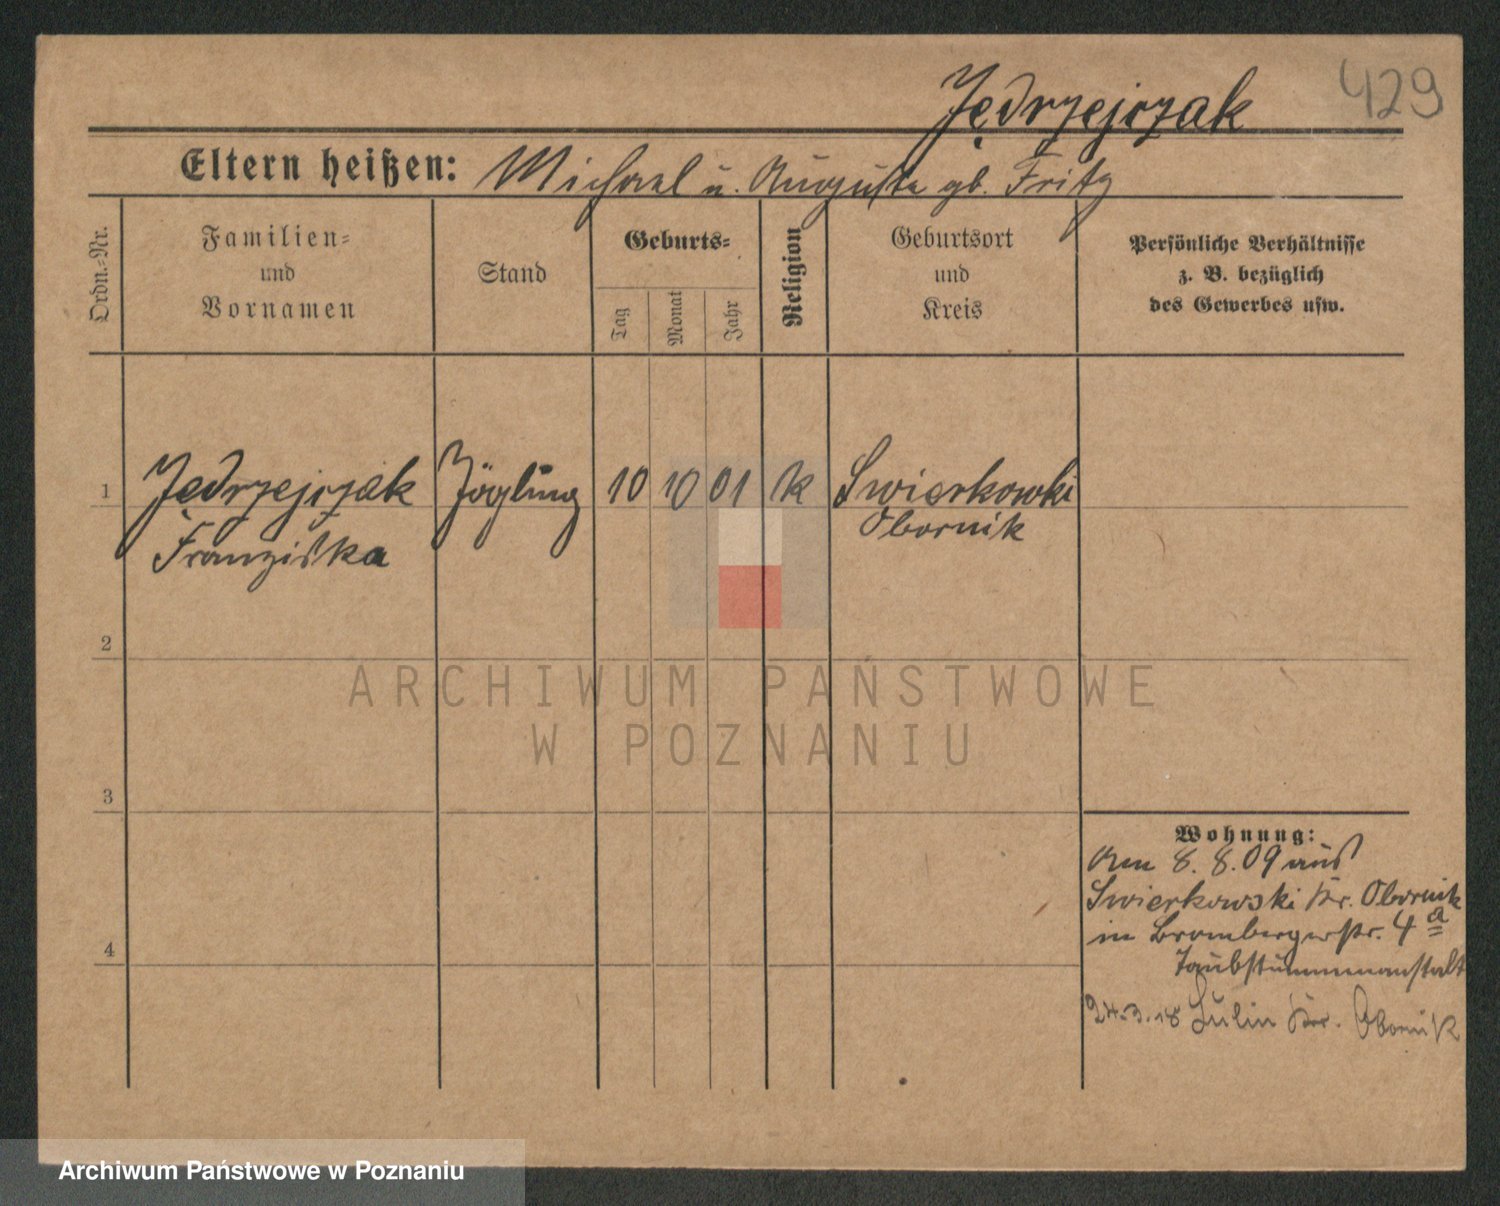 429
Jędrzejczak
Eltern heißen: Michael u. Auguste gb. Fritz
Ordn.-Nr.
Familien-
und
Vornamen
Stand
Geburts-
Tag
Monat
Jahr
Religion
Geburtsort
und
Kreis
Persönliche Verhältnisse
z. B. bezüglich
des Gewerbes usw.
1 Jędrzejczak Zögling 10 10 01 k Swierkowki
Franziska Obornik
2
3
4
ARCHIWUM PAŃSTWOWE
W POZNANIU
Wohnung:
Am 8.8.09 aus
Swierkowski Kr. Obornik
in Brombergerstr. 4a
Taubstummenanstalt
24.3.18 Lulin Kr. Obornik
Archiwum Państwowe w Poznaniu